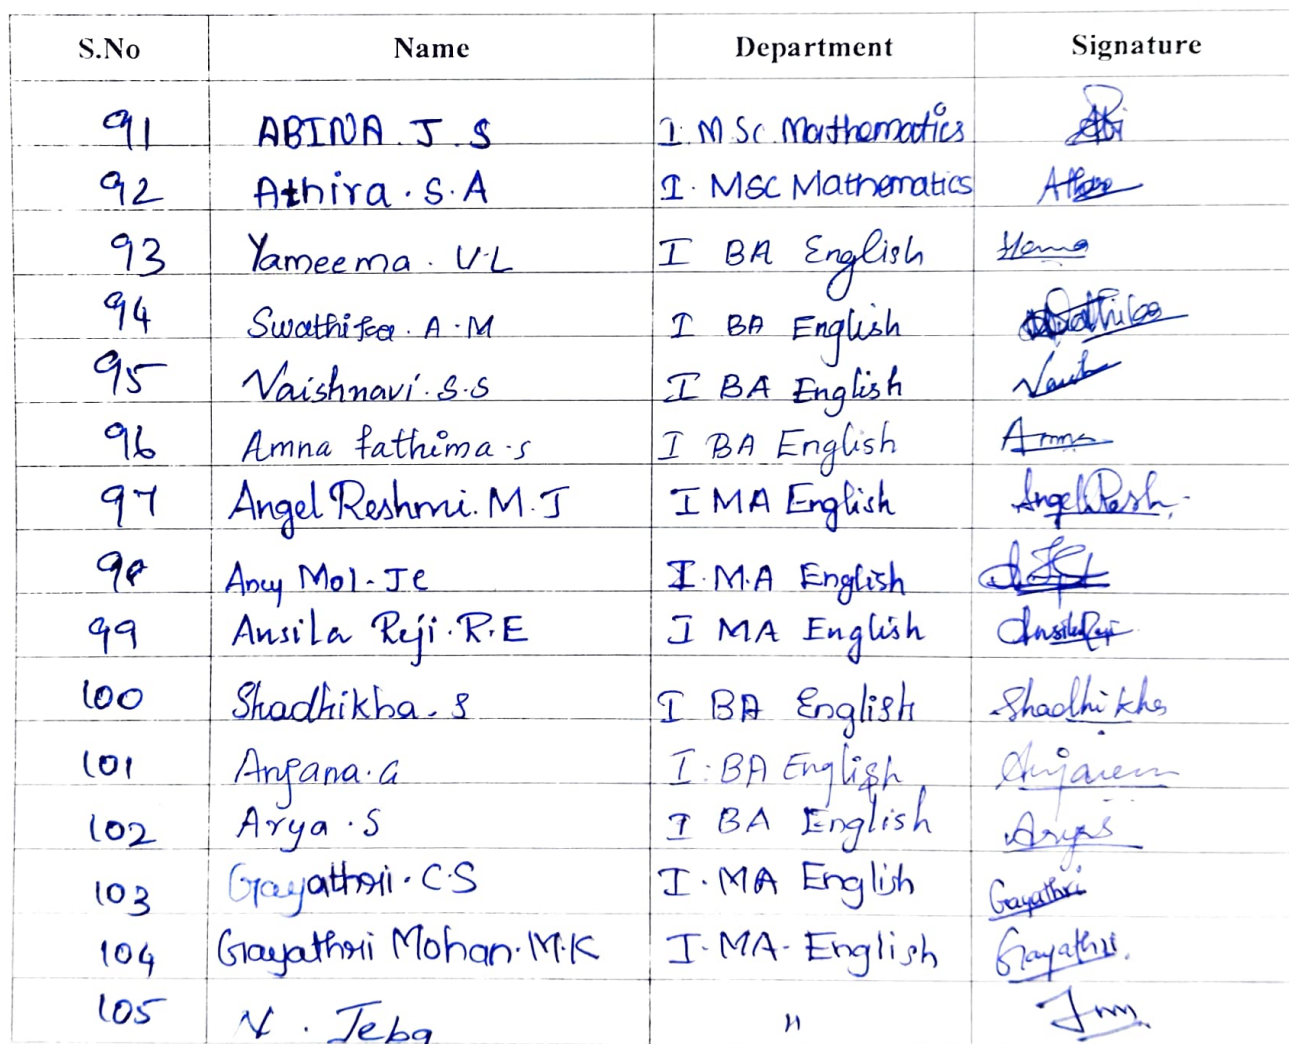 S.No Name Department Signature
91 ABINA J S I M Sc Mathematics Abi
92 Athira . S. A I . MSC Mathematics
93 Yameema . V.L I BA English
94 Swathika . A . M I BA English
95 Vaishnavi . S.S I BA English
96 Amna fathima .s I BA English Amna
97 Angel Reshmi. M. J I MA English Angel Resh.
98 Ancy Mol - J C I. M.A English
99 Ansila Reji. R. E I MA English Ansila Reji
100 Shadhikha . S I BA English Shadhikha
101 Anjana . G I . BA English
102 Arya . S I BA English Arya S
103 Gayathrii . C.S I . MA English Gayathri
104 Gayathrii Mohan. M.K I . MA - English Gayathri.
105 N . Jeba "